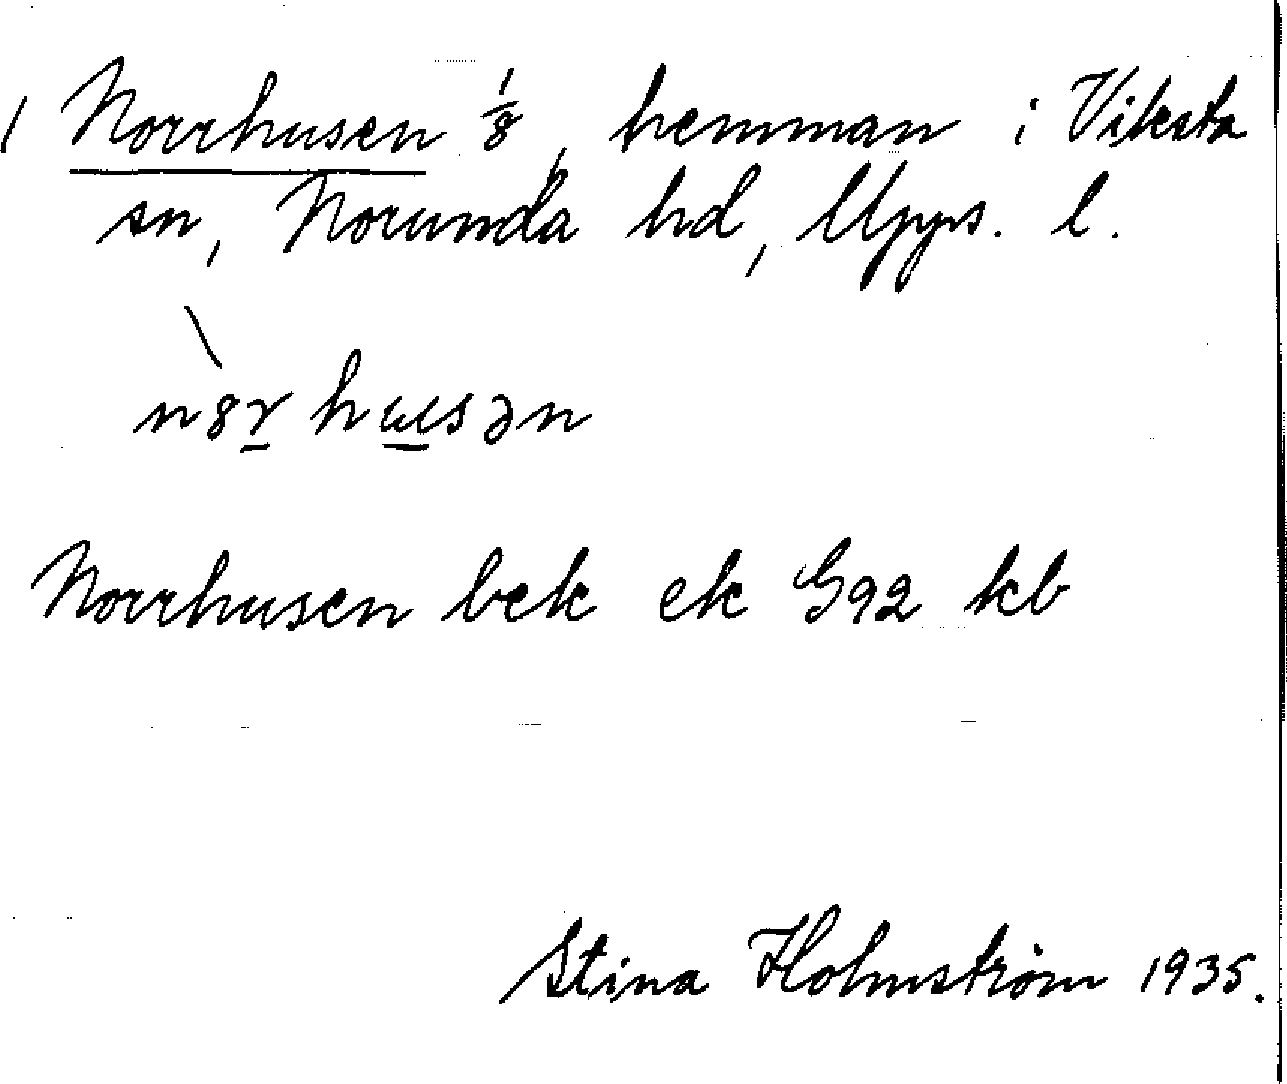 Norrhusen 1/8, hemman i Viksta
sn, Norunda hd, Upps. l.
n8r husən
Norrhusen bek ek G92 kb
Stina Holmström 1935.